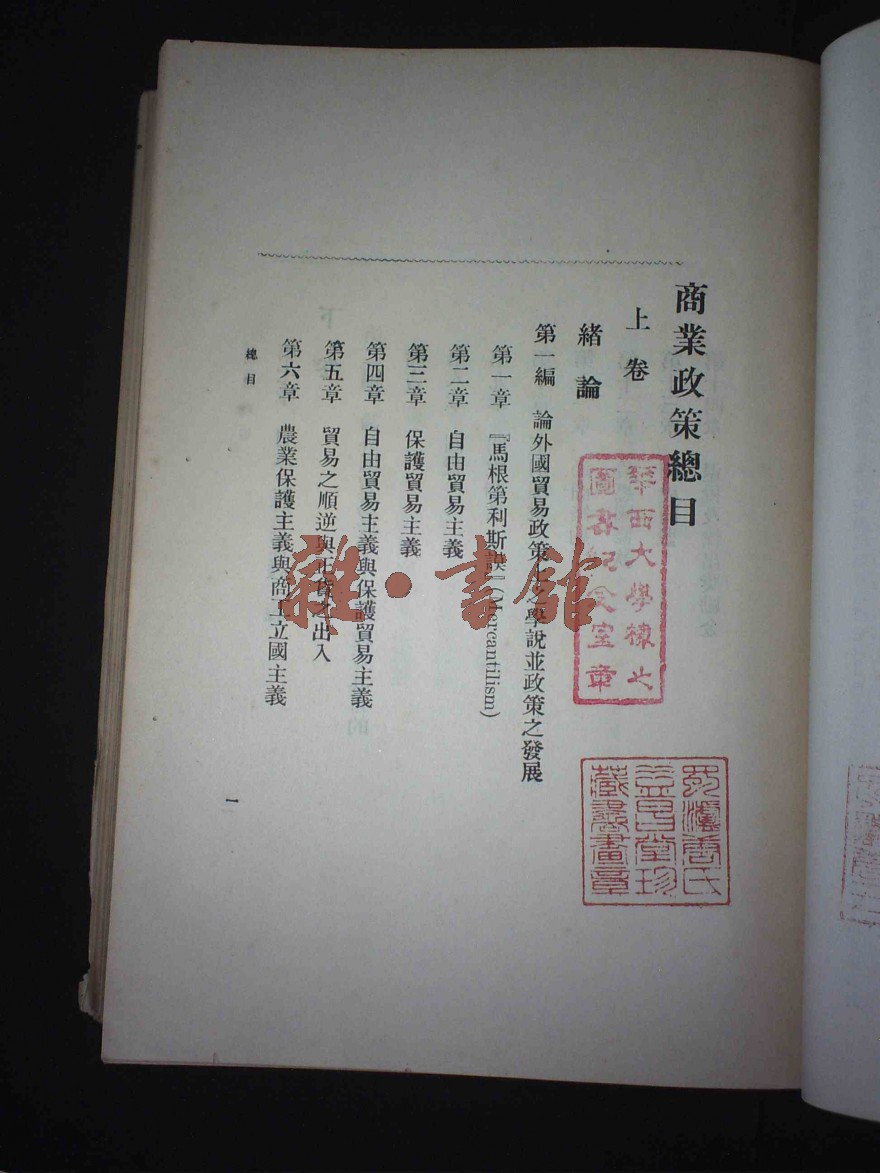 商業政策總目
上卷
緒論
第一編 論外國貿易政策上之學說並政策之發展
第一章 『馬根第利斯誤』(Mercantilism)
第二章 自由貿易主義
第三章 保護貿易主義
第四章 自由貿易主義與保護貿易主義
第五章 貿易之順逆與正貨之出入
第六章 農業保護主義與商工立國主義
總目
一
華西大學
圖書紀念室章
藏書畫章
雜·書館